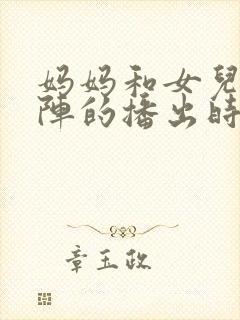 妈妈和女兒
陣的播出時
章玉政